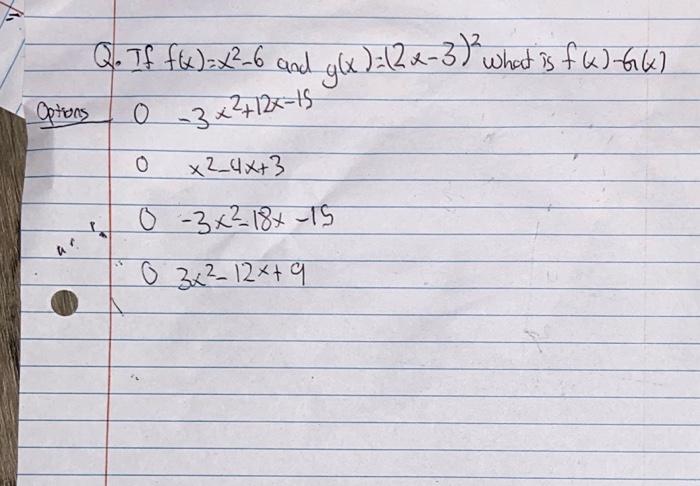 Q. If f(x)=x²-6 and g(x)=(2x-3)² what is f(x)-G(x)
Options O -3x²+12x-15
O x²-4x+3
O -3x²-18x-15
O 3x²-12x+9